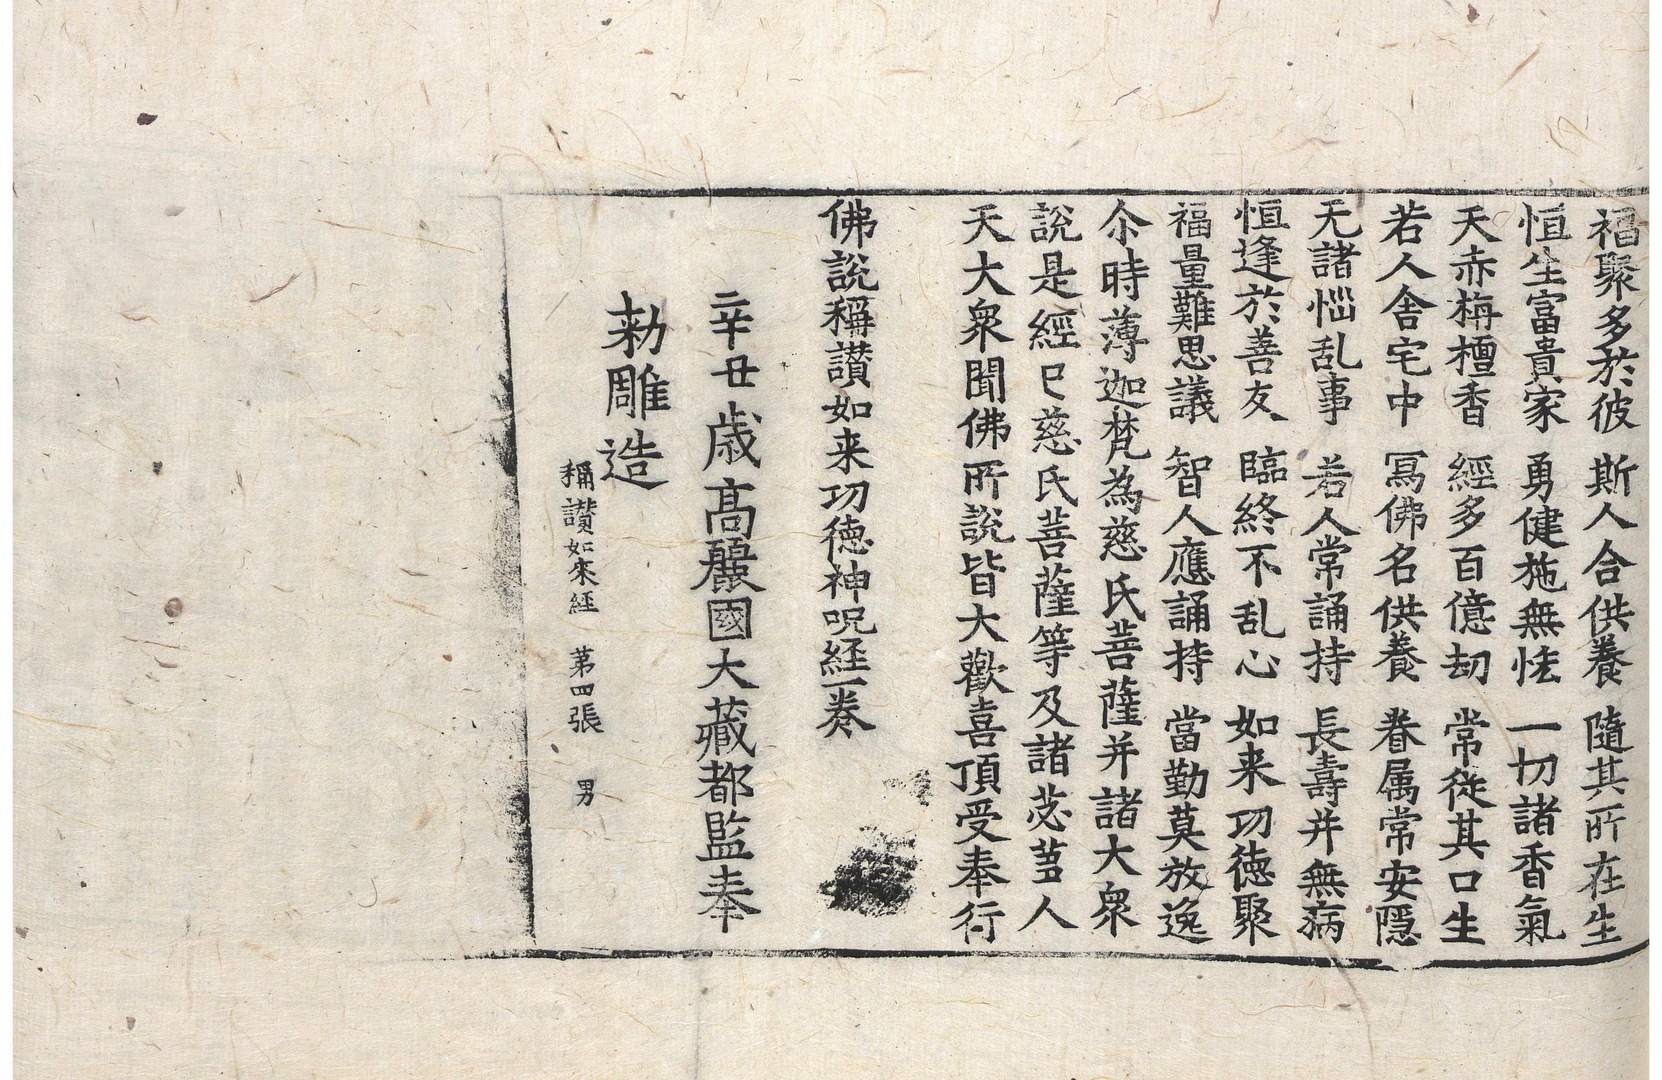 福聚多於彼 斯人合供養 隨其所在生
恒生富貴家 勇健施無怯 一切諸香氣
天赤栴檀香 經多百億劫 常從其口生
若人舍宅中 冩佛名供養 眷属常安隱
无諸惱乱事 若人常誦持 長壽并無病
恒逢於善友 臨終不乱心 如来功德聚
福量難思議 智人應誦持 當勤莫放逸
尒時薄迦梵為慈氏菩薩并諸大衆
說是經已慈氏菩薩等及諸苾芻人
天大衆聞佛所說皆大歡喜頂受奉行
佛說稱讃如来功德神呪經一卷
辛丑歳髙麗國大藏都監奉
勅雕造
稱讃如來經 苐四張 男